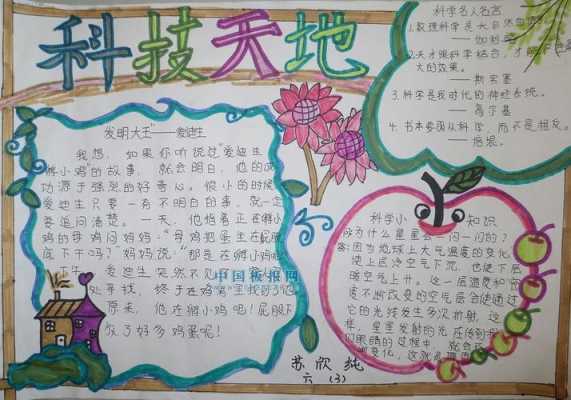 科技天地
发明大王"——爱迪生
我想，如果你听说过"爱迪生
孵小鸡"的故事，就会明白，他的成
功源于强烈的好奇心。很小的时候
爱迪生只要一有不明白的事，就一定
要追问清楚。一天，他指着正在孵小
鸡的母鸡问妈妈："母鸡把蛋坐在屁股
底下干吗？"妈妈说："那是在孵小鸡呢
爱迪生突然不见
处寻找，终于在鸡窝里找到了他
原来，他在孵小鸡呢！屁股下
放了好多鸡蛋呢！
中国板报网
科学名人名言
1.数理科学是大自然
——伽利略
2.天才跟科学结合，才能
大的效果。
——斯宾塞
3.科学是我时代的神经系统。
——高尔基
4.书本要跟从科学，而不是相反。
——培根。
科学小
知识
为什么星星会一闪一闪的？
答：因为地球上大气温度的变化
使上层冷空气下沉，也使下层
暖空气上升。这一层温度和密
度不断改变的空气层会使通过
它的光线发生多次折射，这
样，星星发射的光在传到我
们眼睛的过程中，就会
变化，这就
苏欣纯
六（3）